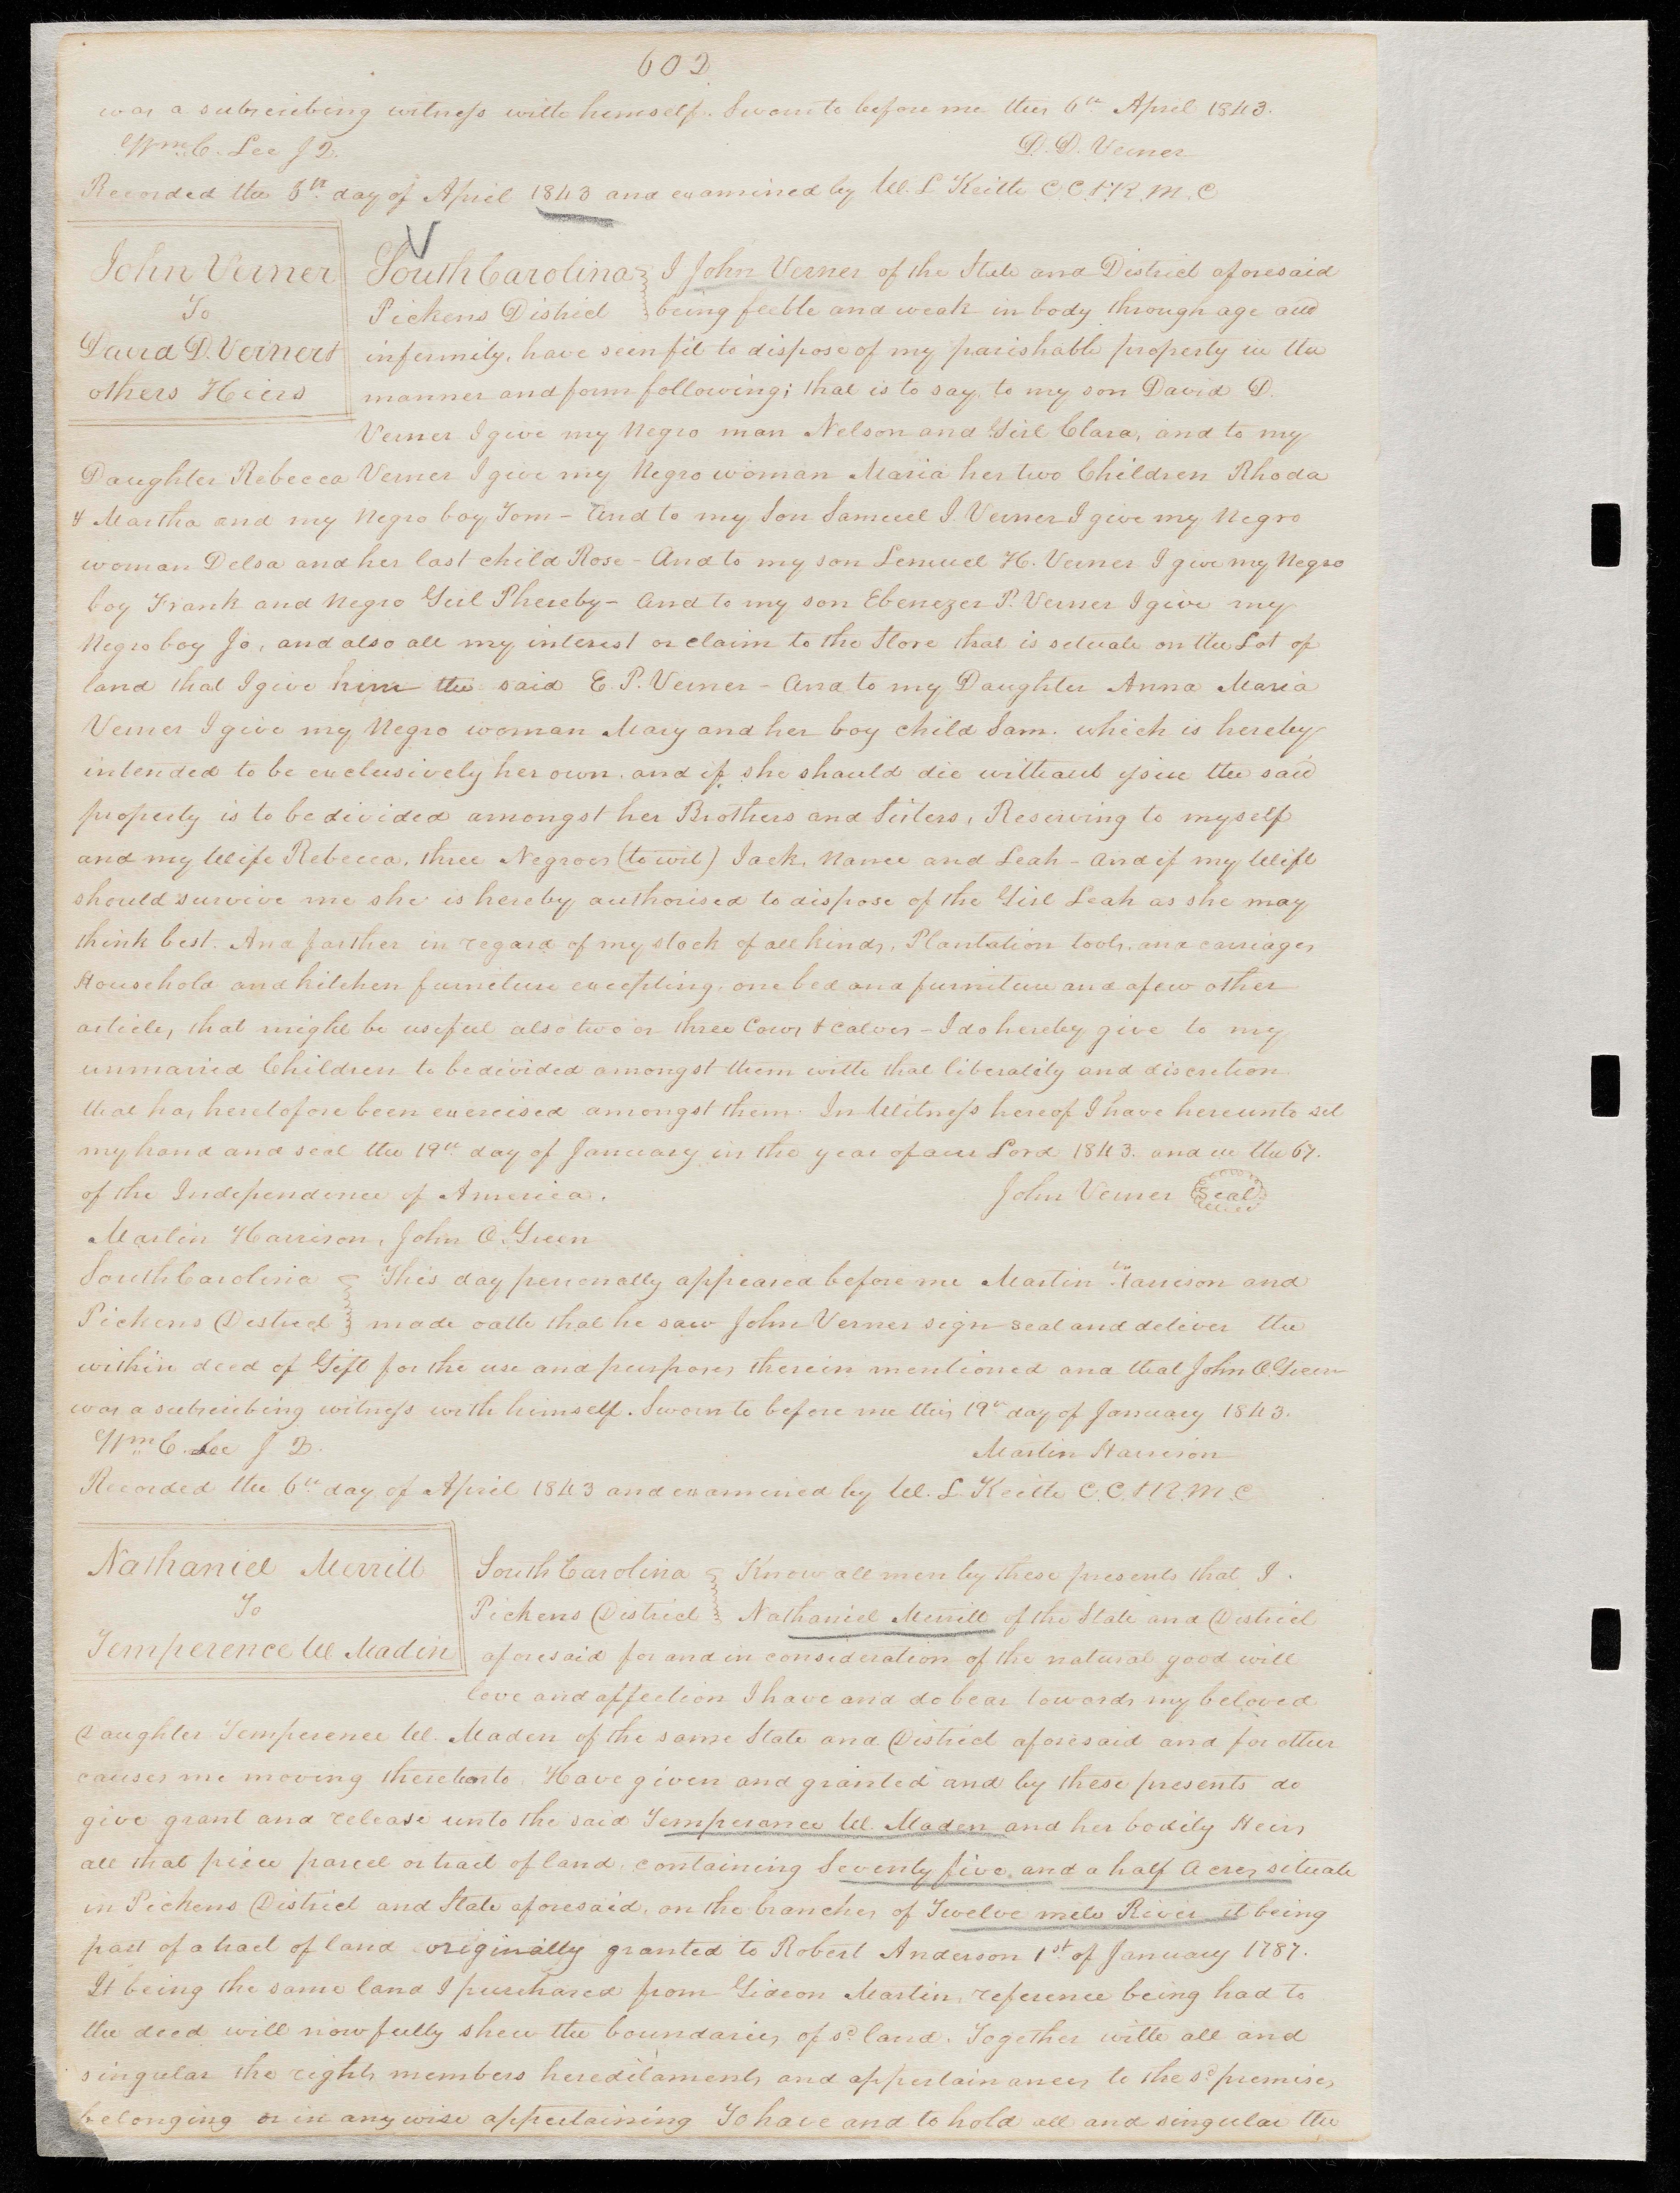 602
was a subscribing witness with himself. Sworn to before me this 6th April 1843.
Wm. C. Lee J Q.
D. D. Verner
Recorded the 6th day of April 1843 and examined by W. L Keith C. C. & R. M. C
John Verner
To
David D. Verner &
others Heirs
South Carolina
Pickens District
I John Verner of the State and District aforesaid
being feeble and weak in body through age and
infirmity, have seen fit to dispose of my parishable property in the
manner and form following; that is to say, to my son David D.
Verner I give my Negro man Nelson and Girl Clara, and to my
Daughter Rebecca Verner I give my Negro woman Maria her two Children Rhoda
& Martha and my Negro boy Tom - And to my Son Samuel I. Verner I give my Negro
woman Delsa and her last child Rose - And to my son Lemuel H. Verner I give my Negro
boy Frank and Negro Girl Phereby - And to my son Ebenezer P. Verner I give my
Negro boy Jo, and also all my interest or claim to the Store that is situate on the Lot of
land that I give him the said E. P. Verner - And to my Daughter Anna Maria
Verner I give my Negro woman Mary and her boy child Sam. which is hereby
intended to be exclusively her own. and if she should die without issue the said
property is to be divided amongst her Brothers and Sisters, Reserving to myself
and my Wife Rebecca, three Negroes (to wit) Jack, Nance and Leah - And if my Wife
should survive me she is hereby authorised to dispose of the Girl Leah as she may
think best. And farther in regard of my stock of all kinds, Plantation tools, and carriages
Household and kitchen furniture excepting, one bed and furniture and a few other
articles that might be useful also two or three Cows & calves - I do hereby give to my
unmarried Children to be divided amongst them with that liberality and discretion
that has heretofore been exercised amongst them. In Witness hereof I have hereunto set
my hand and seal the 19th day of January in the year of our Lord 1843. and in the 67.
of the Independence of America.
John Verner Seal
Martin Harrison, John O. Green
South Carolina
Pickens District
This day personally appeared before me Martin Harrison and
made oath that he saw John Verner sign seal and deliver the
within deed of Gift for the use and purposes therein mentioned and that John O. Green
was a subscribing witness with himself. Sworn to before me this 19th day of January 1843.
Wm C. Lee J Q.
Martin Harrison
Recorded the 6th day of April 1843 and examined by W. L. Keith C. C. & R. M. C
Nathaniel Merrill
To
Temperence W Madin
South Carolina
Pickens District
Know all men by these presents that I
Nathaniel Merrill of the State and District
aforesaid for and in consideration of the natural good will
love and affection I have and do bear towards my beloved
Daughter Temperence W. Maden of the same State and District aforesaid and for other
causes me moving thereunto. Have given and granted and by these presents do
give grant and release unto the said Temperance W. Maden and her bodily Heirs
all that piece parcel or tract of land, containing Seventy five, and a half Acres situate
in Pickens District and State aforesaid, on the branches of Twelve mile River it being
part of a tract of land originally granted to Robert Anderson 1st of January 1787.
It being the same land I purchased from Gideon Martin, reference being had to
the deed will now fully shew the boundaries of sd land. Together with all and
singular the rights members hereditaments and appertainances to the sd premises
belonging or in any wise appertaining To have and to hold all and singular the